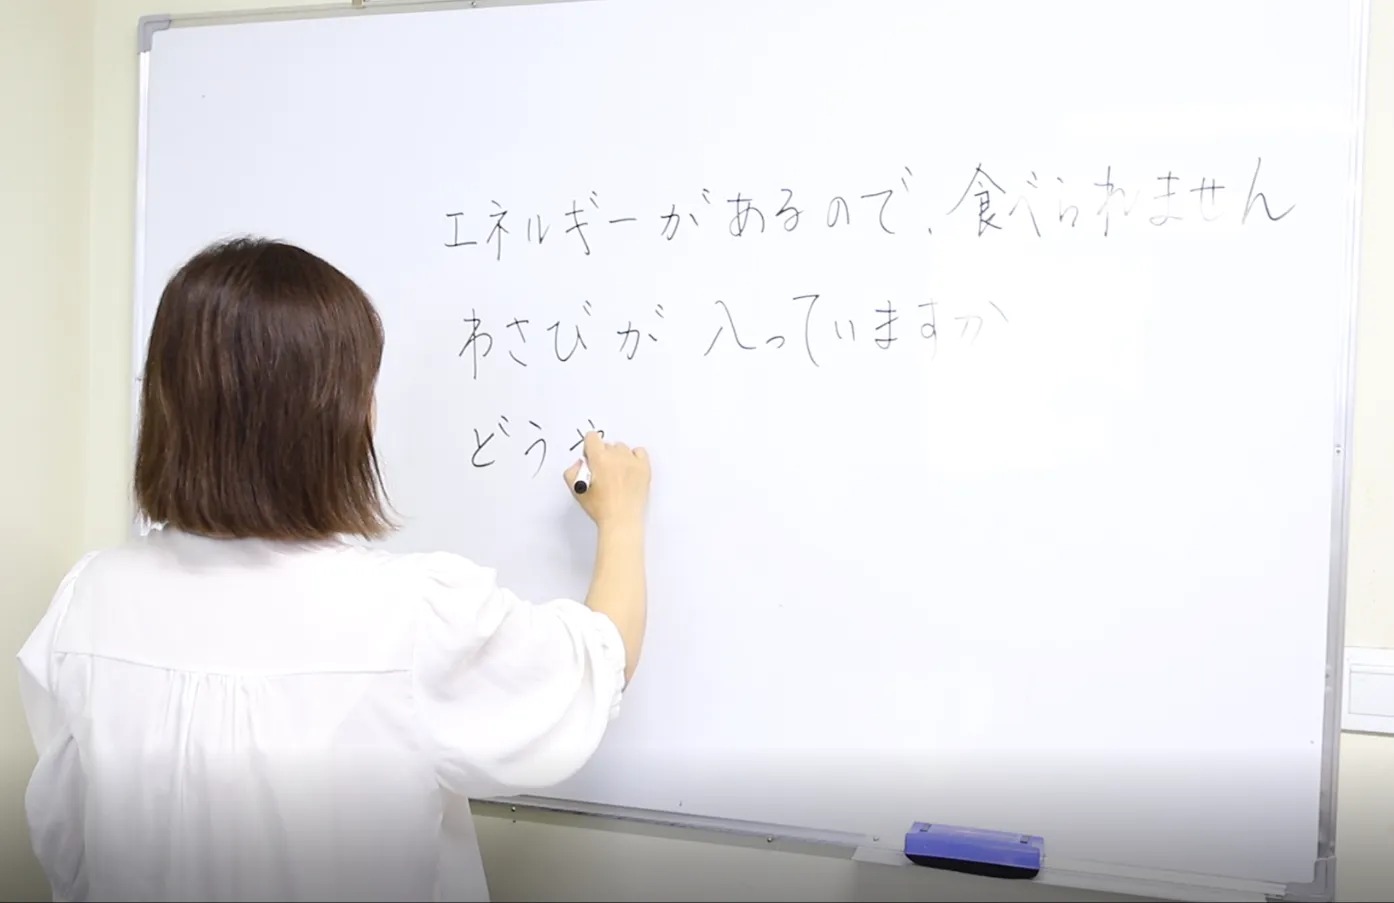 エネルギーがあるので、食べられません
わさびが入っていますか
どうや